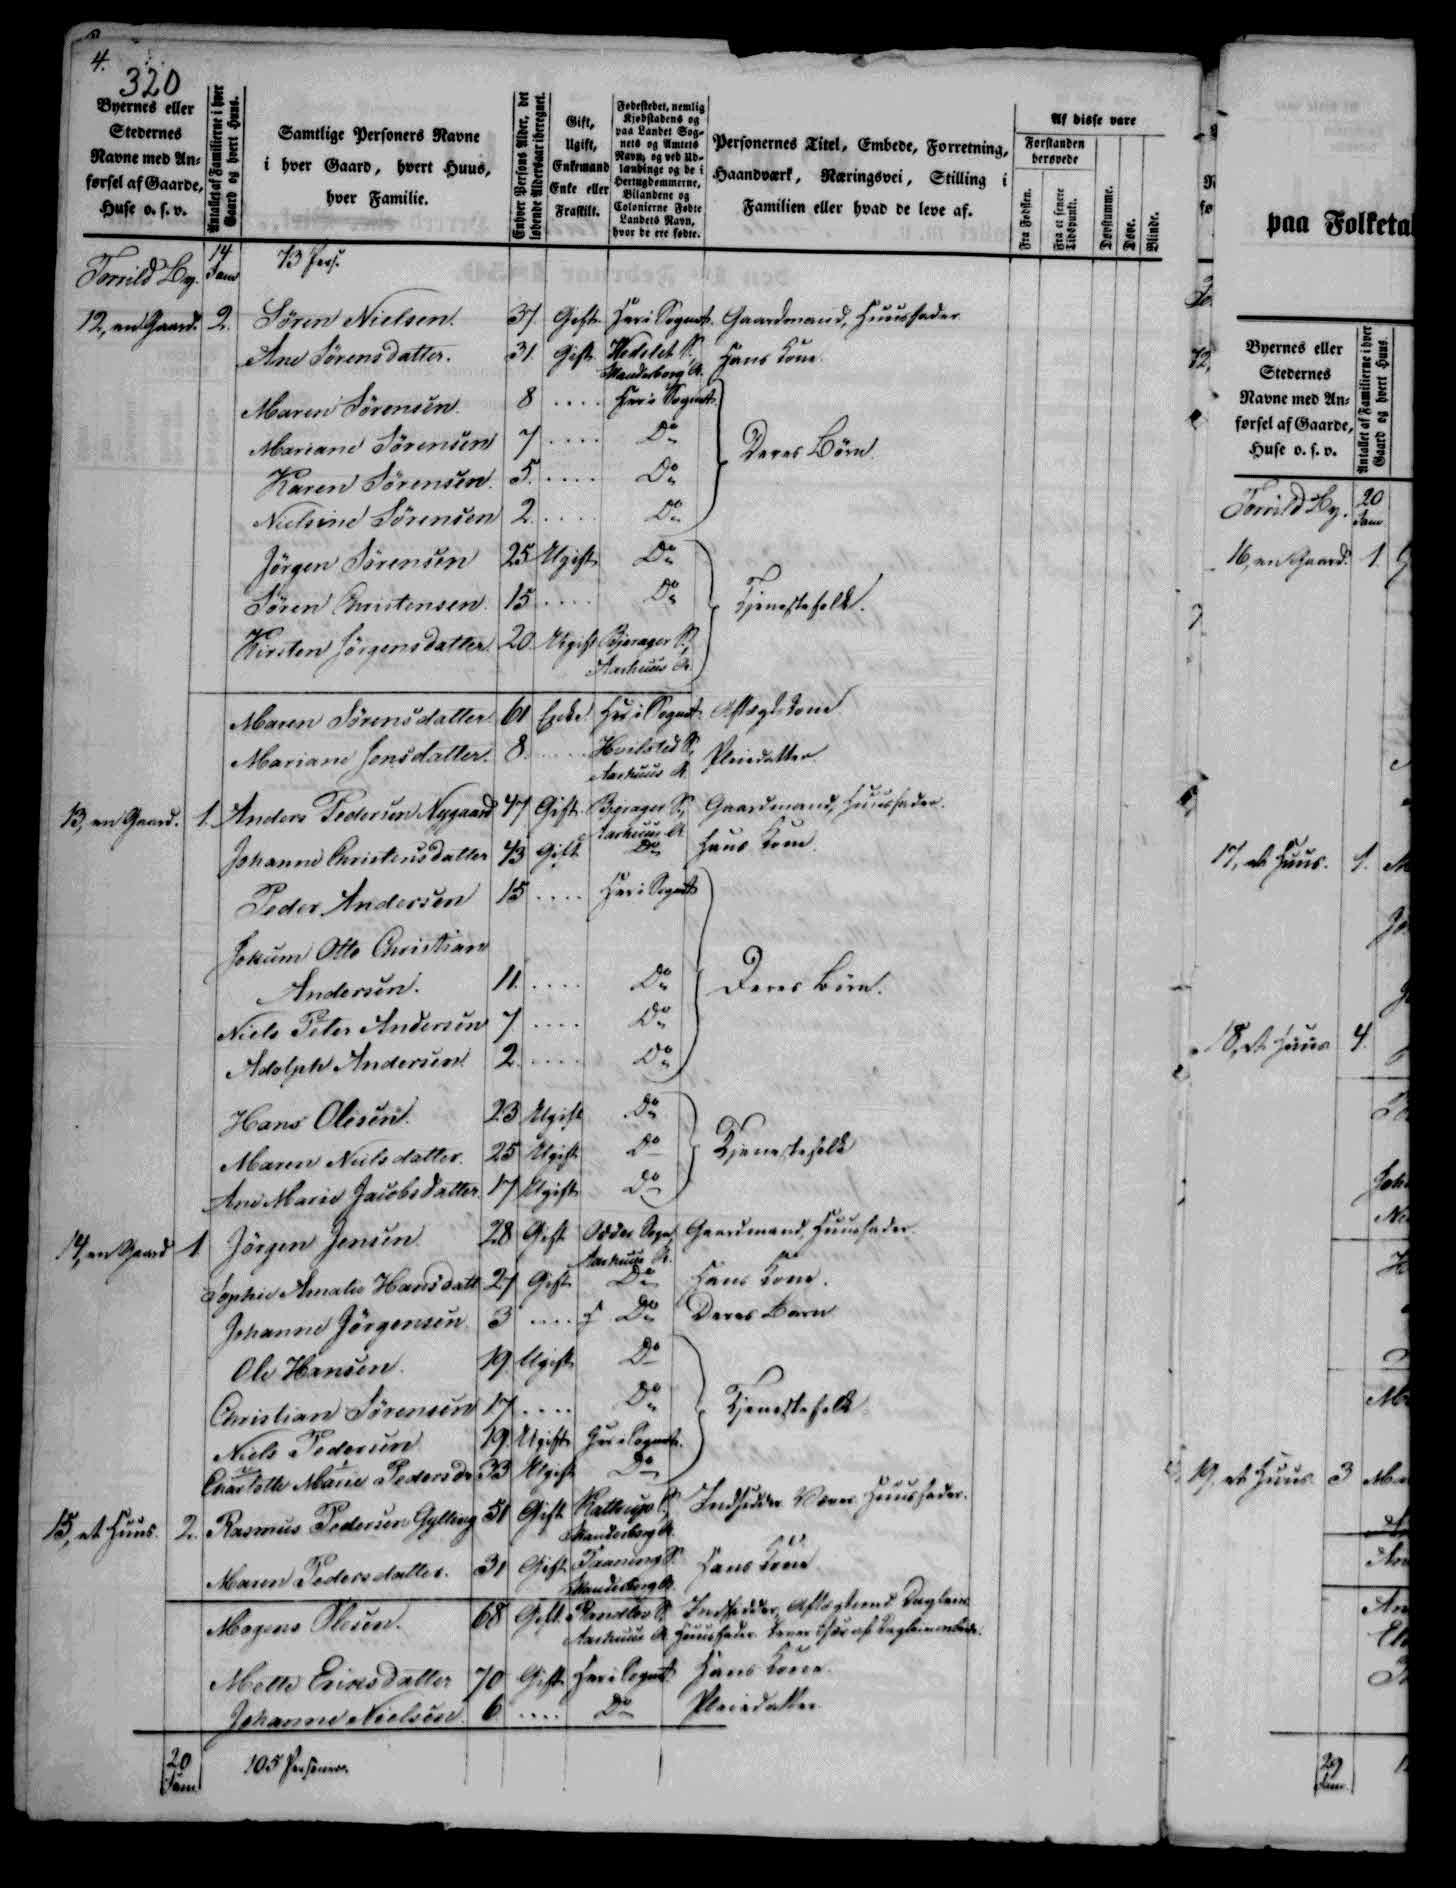 4.
320
Byernes eller
Stedernes
Navne med An-
førsel af Gaarde,
Huse o. s. v.
Antallet af Familierne i hver
Gaard og hvert Huus.
Samtlige Personers Navne
i hver Gaard, hvert Huus,
hver Familie.
Enhver Persons Alder, det
løbende Aldersaar iberegnet.
Gift,
Ugift,
Enkemand
Enke eller
Fraskilt.
Fødestedet, nemlig
Kjøbstadens og
paa Landet Sog-
nets og Amtets
Navn, og ved Ud-
lændinge og de i
Hertugdømmerne,
Bilandene og
Colonierne Fødte
Landets Navn,
hvor de ere fødte.
Personernes Titel, Embede, Forretning,
Haandværk, Næringsvei, Stilling i
Familien eller hvad de leve af.
Af disse vare
Forstanden
berøvede
Fra Fødslen.
Fra et senere
Tidspunkt.
Døvstumme.
Døve.
Blinde.
Torrild By. 14 Fam 73 Pers.
12, en Gaard. 2. Søren Nielsen. 37 Gift Her i Sognet. Gaardmand, Huusfader
Ane Sørensdatter. 31 Gift Hedslet S. Skanderborg A. Hans Kone
Maren Sørensen. 8 .... Her i Sognet
Mariane Sørensen 7 .... Do
Deres Børn.
Karen Sørensen. 5. .... Do
Nielsine Sørensen 2 .... Do
Jörgen Sørensen 25 Ugift Do
Søren Christensen. 15 .... Do Tjenestefolk.
Kirsten Jörgensdatter 20 Ugift Bjerager S., Aarhuus A.
Maren Sørensdatter 61 Enke Her i Sognet Aftægtskone
Mariane Jensdatter. 8. .... Hvilsted S., Aarhuus A. Pleiedatter
13, en Gaard. 1. Anders Pedersen Nygaard 47 Gift Bjerager S., Aarhuus A. Gaardmand, Huusfader.
Johanne Christensdatter 43 Gift Do Hans Kone.
Peder Andersen 15 .... Her i Sognet
Jokum Otto Christian
Andersen. 11. .... Do Deres Börn.
Niels Peter Andersen 7 .... Do
Adolph Andersen 2 .... Do
Hans Olesen. 23 Ugift Do
Maren Nielsdatter. 25 Ugift Do Tjenestefolk
Ane Marie Jacobsdatter. 17 Ugift Do
14, en Gaard 1 Jörgen Jensen 28 Gift Odder Sogn, Aarhuus A. Gaardmand, Huusfader.
Sophie Amalie Hansdatt 27 Gift Do Hans Kone.
Johanne Jörgensen 3 .... Do Deres Barn
Ole Hansen. 19. Ugift Do
Christian Sørensen 17 .... Do Tjenestefolk
Niels Pedersen 19 Ugift Her i Sognet.
Charlotte Marie Pedersdr 33 Ugift Do
15, et Huus. 2. Rasmus Pedersen Gylling 51 Gift S., Skanderborg A. Indsidder Huusfader.
Maren Pedersdatter. 31 Gift Taaning S. Skanderborg A. Hans Kone
Mogens Olesen. 68 Gift Randlev S., Aarhuus A. Indsidder, Huusfader
Mette Ericsdatter 70 Gift Her i Sognet Hans Kone.
Johanne Nielsen. 6 .... Do Pleiedatter
20 Fam 105 Personer.
paa Folketal
Byernes eller
Stedernes
Navne med An-
førsel af Gaarde,
Huse o. s. v.
Antallet af Familierne i hver
Gaard og hvert Huus.
Torrild By. 20 Fam
16, en Gaard. 1.
17, et Huus. 1.
18, et Huus 4.
19, et Huus 3
29 Fam.